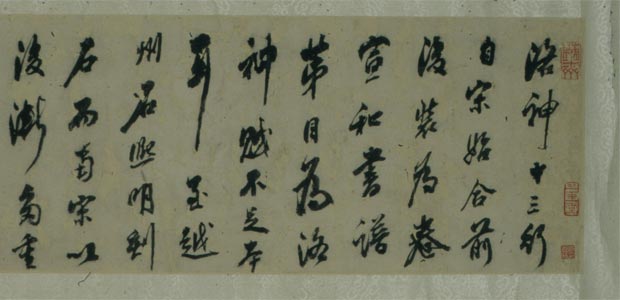 洛神十三行
自宋始合前
後裝為卷
宣和書譜
第目為洛
神賦不足本
耳 至越
州石熙明刻
石而南宋以
後漸重